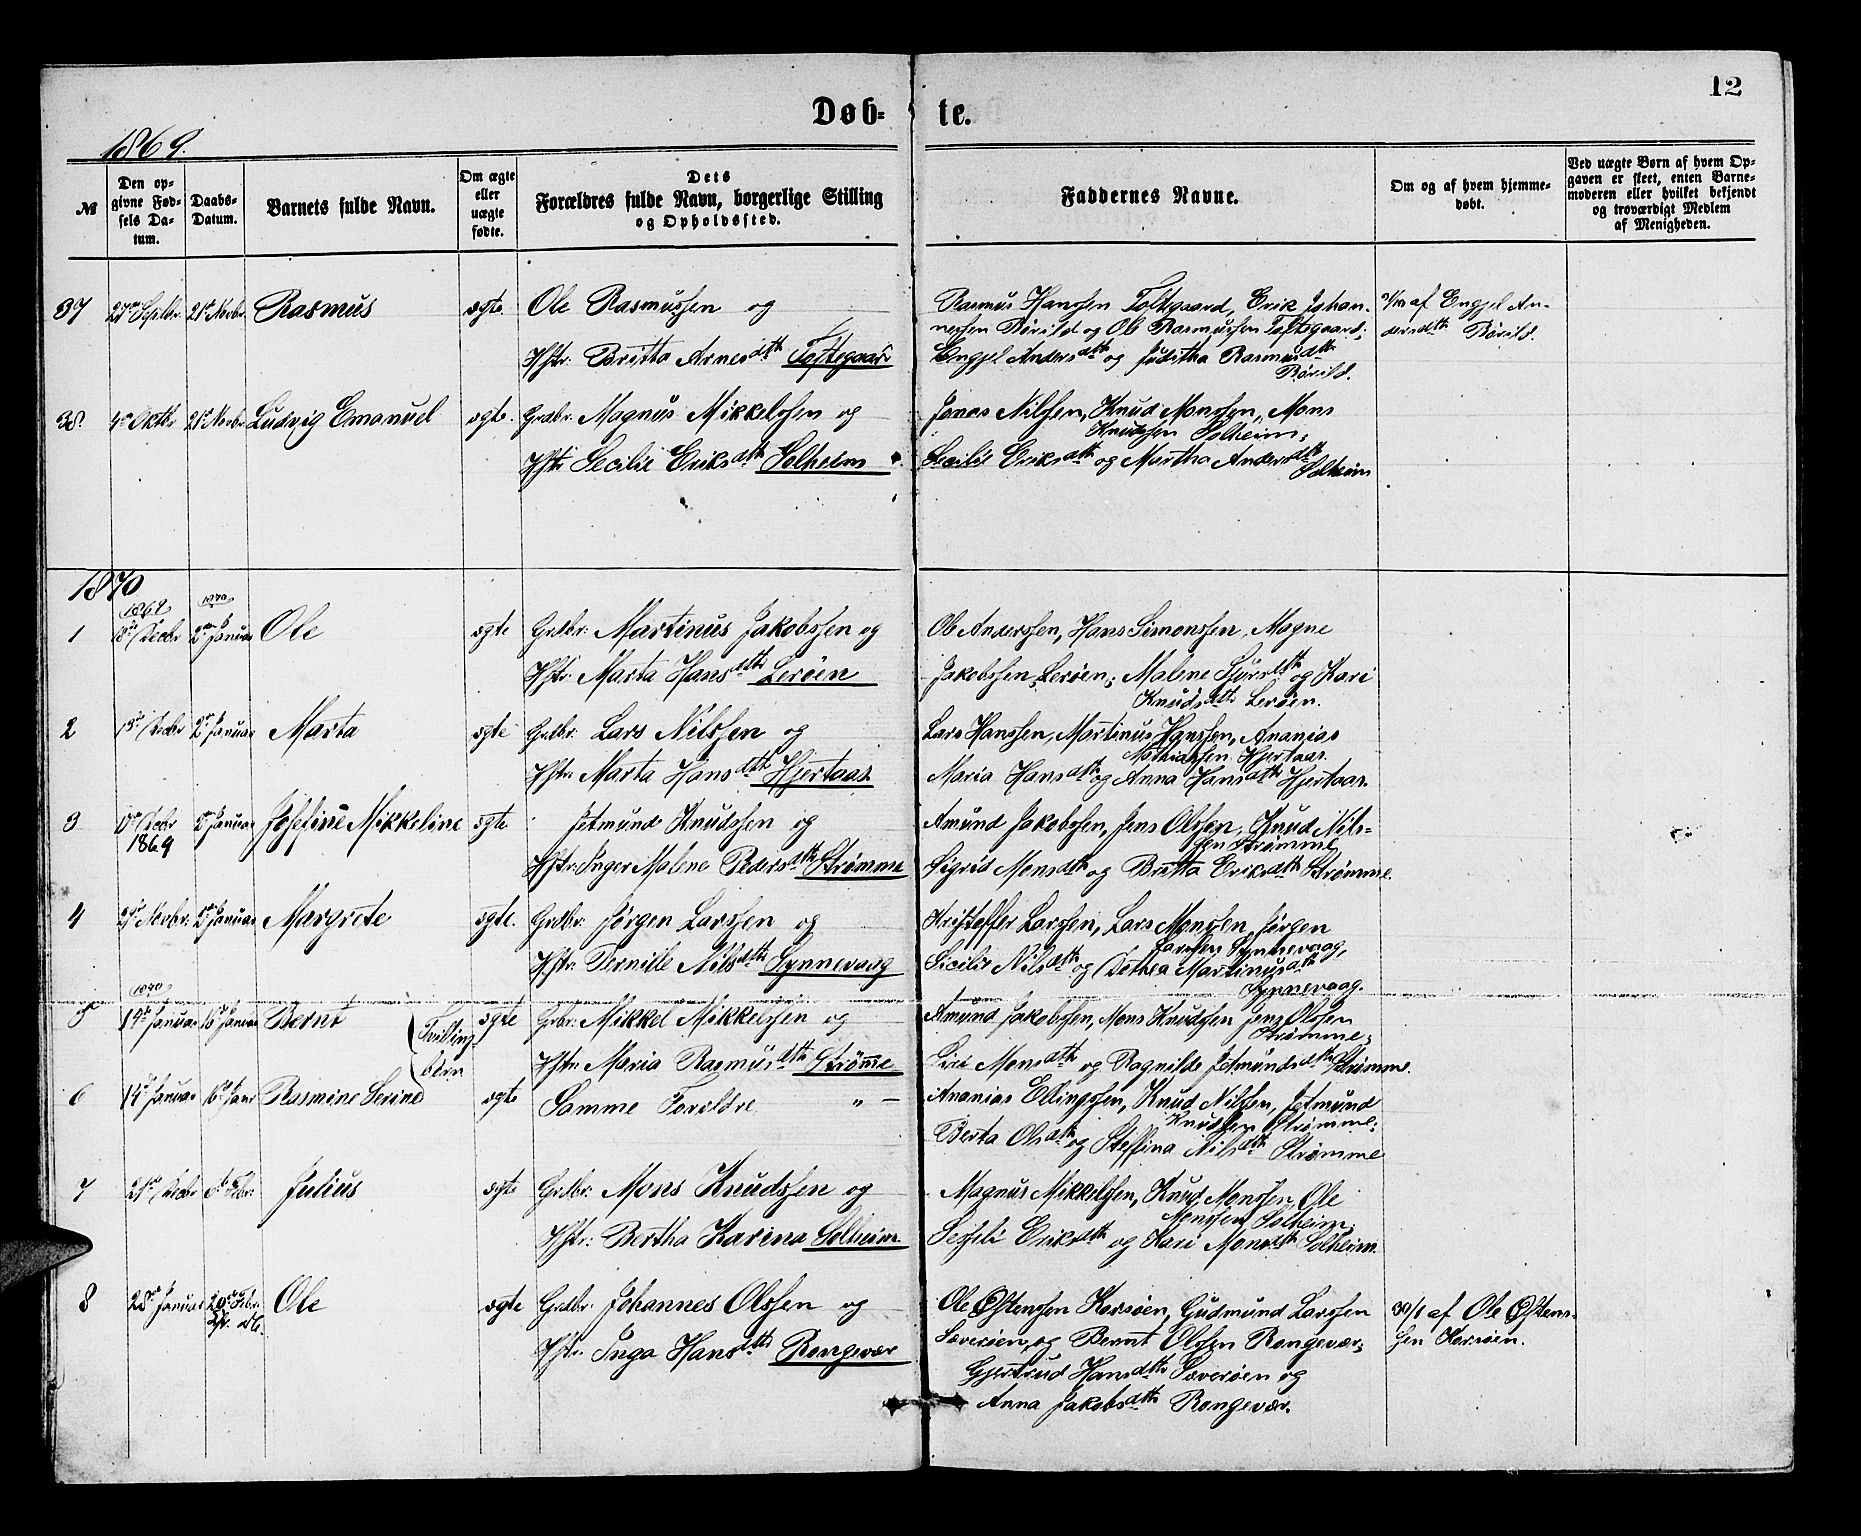 12
Døb- te.
1869.
№
Den op-
givne Fød-
sels Da-
tum.
Daabs-
Datum.
Barnets fulde Navn.
Om ægte
eller
uægte
fødte.
Dets
Forældres fulde Navn, borgerlige Stilling
og Opholdssted.
Faddernes Navne.
Om og af hvem hjemme-
døbt.
Ved uægte Børn af hvem Op-
gaven er skeet, enten Barne-
moderen eller hvilket bekjendt
og troværdigt Medlem
af Menigheden.
37 Septbr. 21de Novbr. Rasmus ægte. Ole Rasmussen og
Hstr: Britta Arnesdtr Toftegaard
Rasmus Hanssen Toftegaard, Erik Johan-
nessen Børild og Ole Rasmussen Toftegaard;
Engjel Andersdtr og Juditha Rasmusdtr
Børild.
af Engjel An-
dersdtr Børild.
38. 4de Oktbr 21de Novbr Ludvig Emanuel ægte. Grdbr. Magnus Mikkelssen og
Hstr Secilie Eriksdtr Solheim
Jonas Nilssen, Knud Monssen, Mons
Knudssen Solheim;
Secilie Eriksdtr og Martha Andersdtr
Solheim
1870
1869 1870
1 18de Decbr 2den Januar Ole ægte Grdbr: Martinus Jakobssen og
Hstr: Marta Hansdtr Lerøen
Ole Anderssen, Hans Simonssen, Magne
Jakobssen Lerøen; Malene Sjursdtr og Kari
Knudsdtr Lerøen.
2 13de Decbr 2den Januar Marta ægte Grdbr: Lars Nilssen og
Hstr: Marta Hansdtr Hjertaas
Lars Hanssen, Martinus Hanssen, Ananias
Mathiassen Hjertaas.
Maria Hansdtr og Anna Hansdtr Hjertaas
3 Decbr Januar Josefine Mikkeline ægte Jetmund Knudssen og
1869
Hstr: Inger Malene Pedersdtr Strømme
Amund Jakobssen, Jens Olssen, Knud Nils-
sen Strømme,
Sigrid Monsdtr og Britta Eriksdtr Strømme.
4 Novbr. Januar Margrete ægte. Grdbr. Jørgen Larssen og
Hstr: Pernille Nilsdtr Synnevaag
Kristoffer Larssen, Lars Monssen, Jørgen
Larssen Synnevaag,
Sicilie Nilsdtr og Dethea Martinusdtr
Synnevaag.
1870
5 14de Januar 16de Januar Bernt ægte Grbr: Mikkel Mikkelssen og
Tvilling-
børn
Hstr: Maria Rasmusdtr Strømme
Amund Jakobssen, Mons Knudssen Jens Olssen
Strømme;
Siri Monsdtr og Ragnilde Jetmundsdtr Strømme.
6 14de Januar 16de Janr Rasmine Serine ægte Samme Forældre " —
Ananias Ellingssen, Knud Nilssen, Jetmund
Knudssen Strømme;
Berta Olsdtr og Steffina Nilsdtr Strømme
7 Decbr 6te Febr. Julius ægte Grdbr: Mons Knudssen og
Hstr: Bertha Karina Solheim
Magnus Mikkelssen, Knud Monssen, Ole
Monssen Solheim;
Sesseli Eriksdtr og Kari Monsdtr Solheim.
8 28de Januar 20de Febr. Ole ægte Grdbr. Johannes Olssen og
Hstr. Inga Hansdtr Rongevær
Ole Østenssen Kersøen, Gudmund Larssen
Sæverøen, og Bernt Olssen Rongevær;
Gjertrud Hansdtr Sæverøen og
Anna Jakobsdtr Rongevær.
30/1 af Ole Østens-
sen Kersøen.